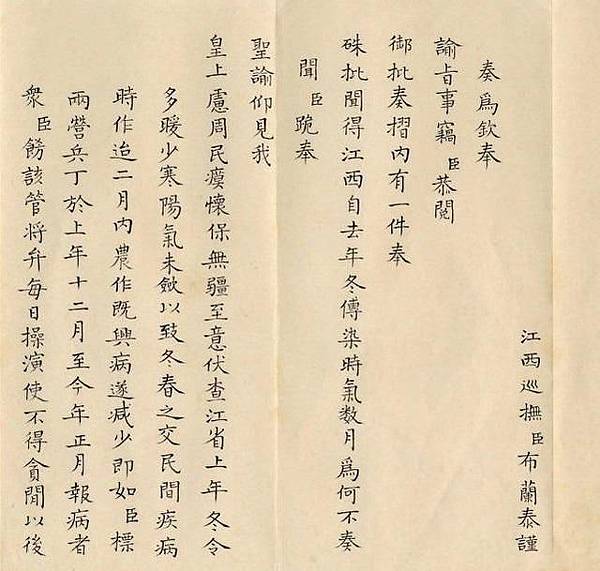 江西巡撫臣布蘭泰謹
奏爲欽奉
諭旨事竊臣恭閱
御批奏摺內有一件奉
硃批聞得江西自去年冬傳染時氣数月爲何不奏
聞臣跪奉
聖諭仰見我
皇上慮周民瘼懷保無疆至意伏查江省上年冬令
多暖少寒陽氣未斂以致冬春之交民間疾病
時作迨二月內農作既興病遂减少即如臣標
兩營兵丁於上年十二月至今年正月報病者
衆臣餝該管将弁每日操演使不得貪閒以後